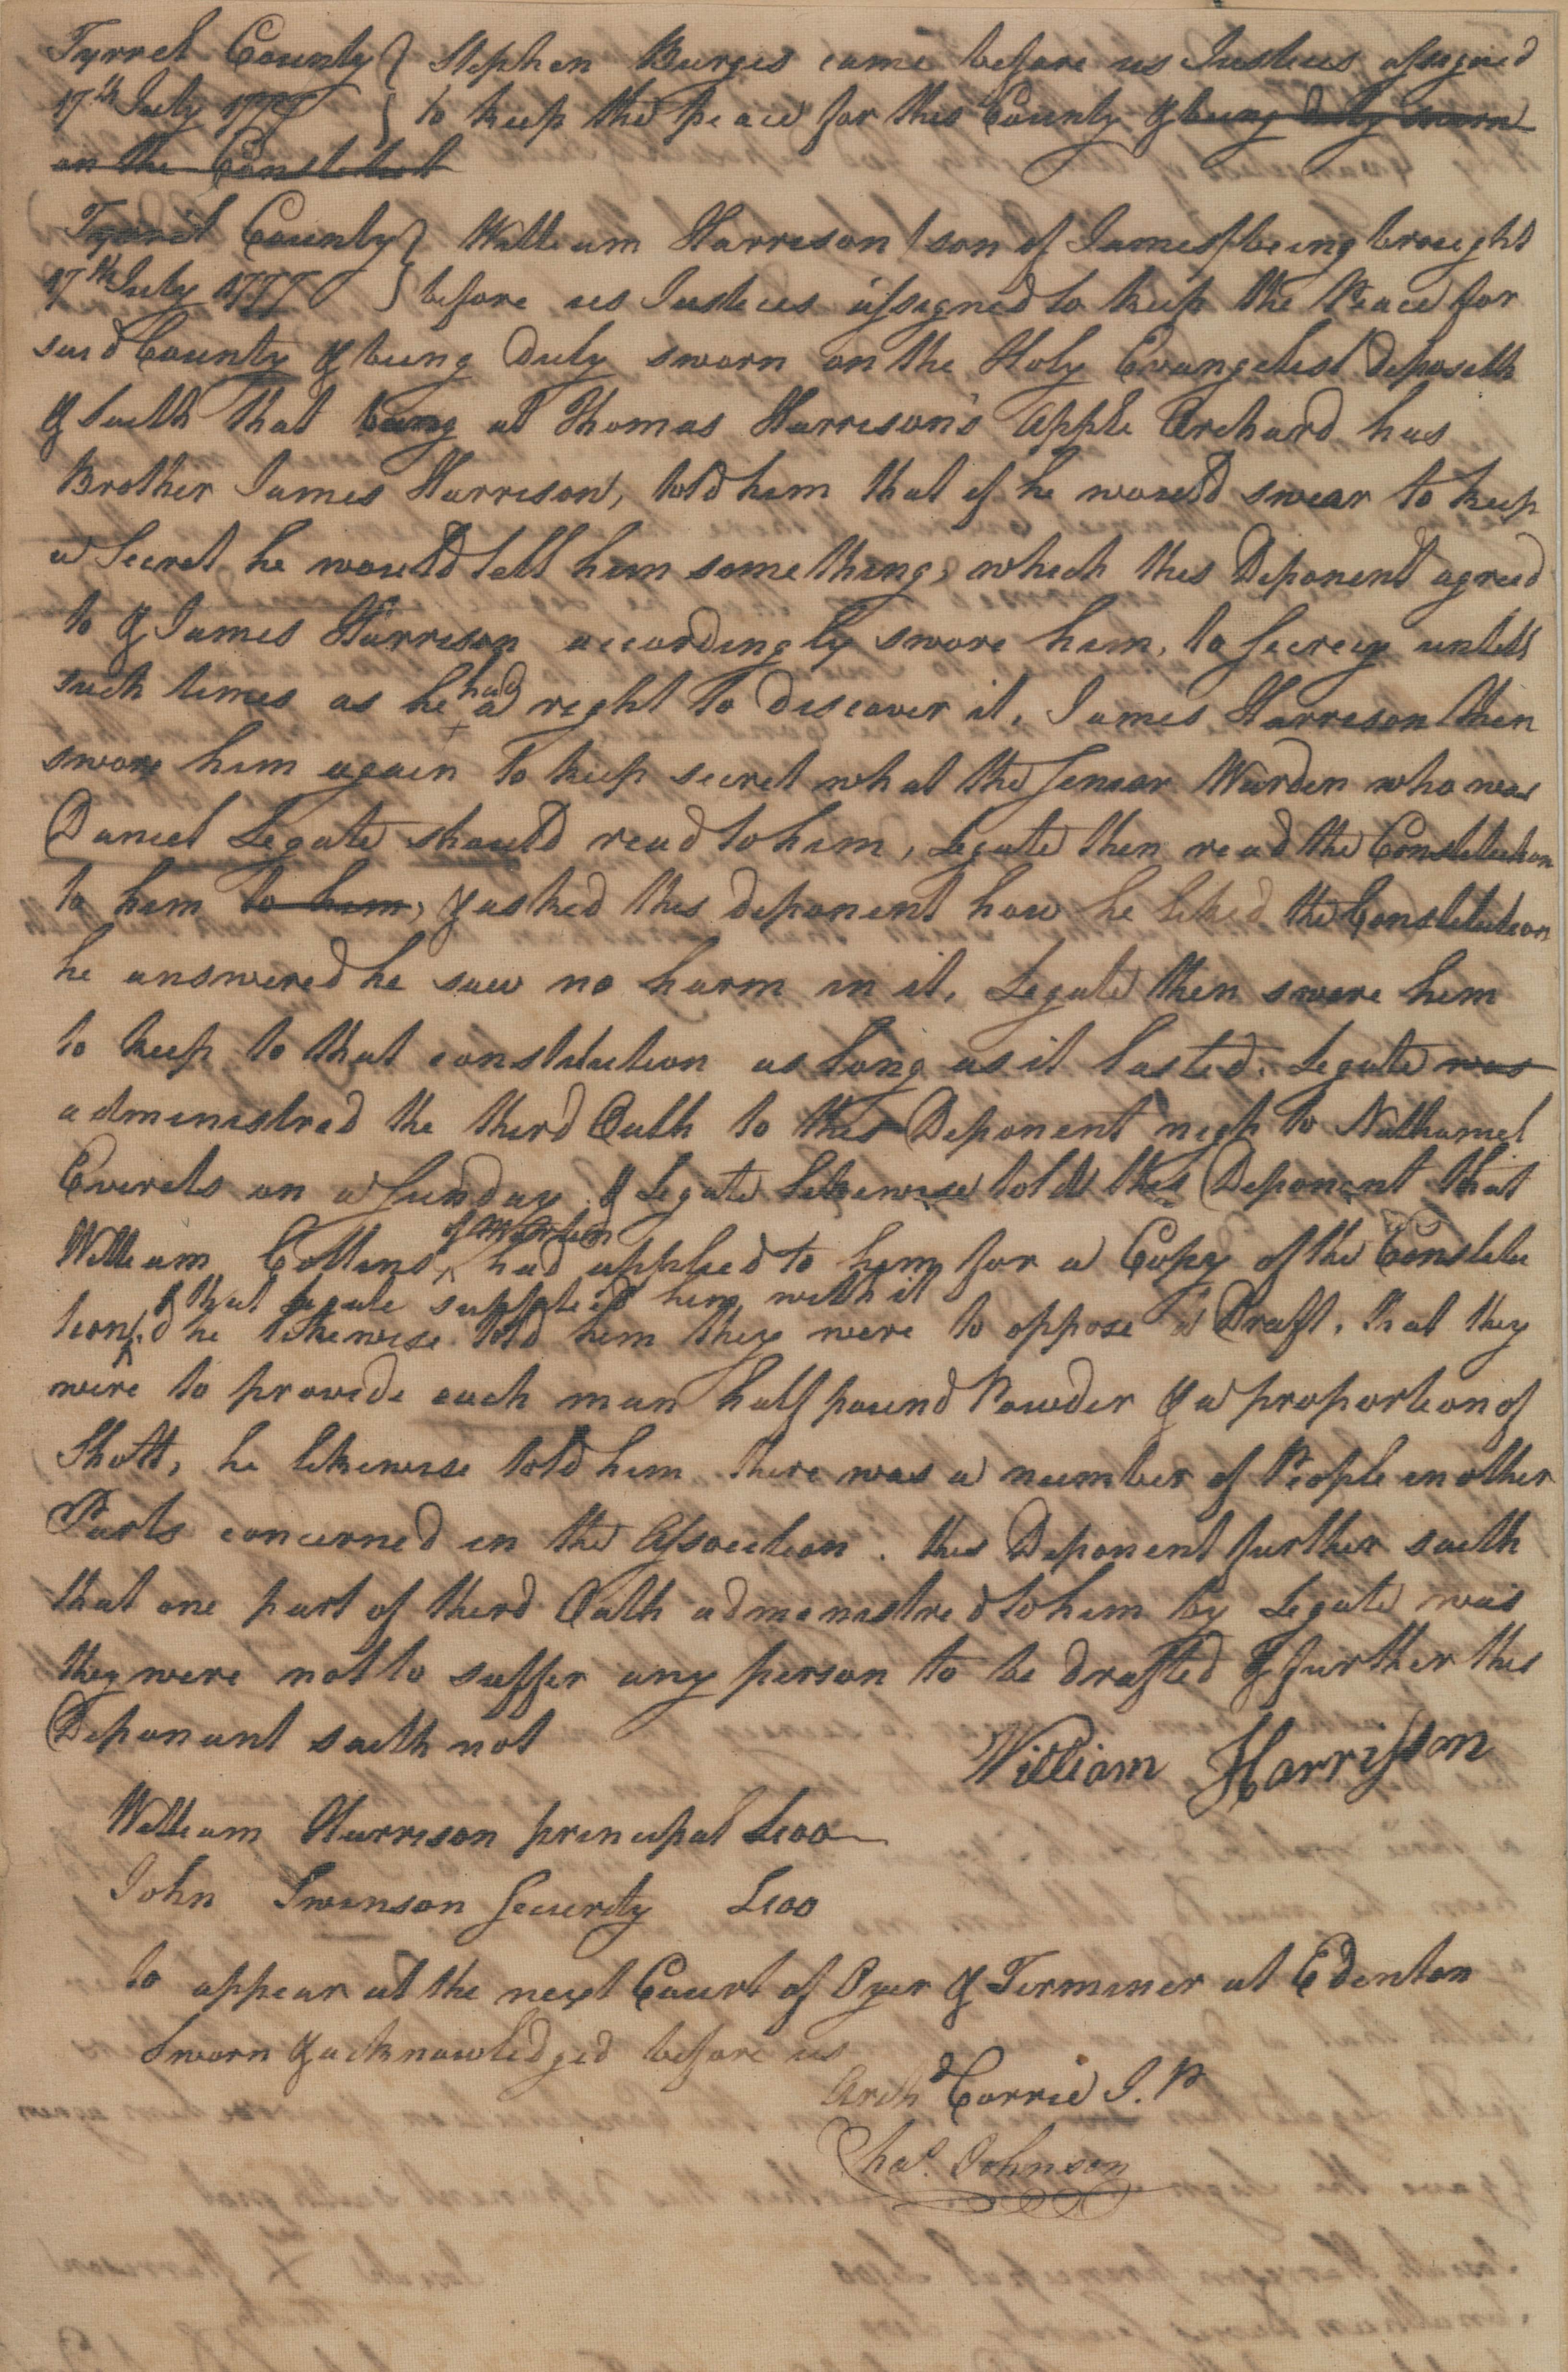 Tyrrel County } Stephen Burges came before us Justices assigned
17th July 1777 } to keep the peace for this County & being duly sworn
on the Constitut
Tyrrel County } William Harrison (son of James) being brought
17th July 1777 } before us Justices assigned to keep the Peace for
said County & being Duly sworn on the Holy Evangelist deposeth
& saith that being at Thomas Harrison's Apple Orchard his
Brother James Harrison, told him that if he would swear to keep
a Secret he would tell him something, which this Deponent agreed
to & James Harrison accordingly swore him, to secrecy untill
such times as he had a right to discover it, James Harrison then
swore him again to keep secret what the Senior Warden who was
Daniel Legate should read to him, Legate then read the Constitution
to him to him, & asked this deponent how he liked the Constitution
he answered he saw no harm in it, Legate then swore him
to keep to that constitution as long as it lasted, Legate was
administred the third Oath to this Deponent nigh to Nathaniel
Everets on a Sunday & Legate likewise told this Deponent that
of Martin
William Collins ^ had applied to him for a Copy of the Constitu
& that Legate supplied him with it
tion, & he likewise told him they were to oppose a Draft, that they
were to provide each man half pound Powder & a proportion of
Shott, he likewise told him there was a number of People in other
Parts concerned in the Association. this Deponent further saith
that one part of third Oath administred to him by Legate was
they were not to suffer any person to be drafted & further this
Deponant saith not
William Harrisson
William Harrison principal £100
John Swinson Security £100
to appear at the next Court of Oyer & Terminer at Edenton
Sworn & acknowledged before us
Archd Corrie J. P
Chas. Johnson